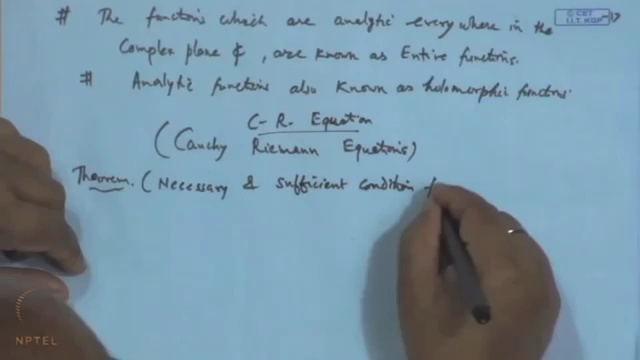 # The functions which are analytic everywhere in the
Complex plane ₵, are known as Entire functions.
# Analytic functions also known as holomorphic functions.
C-R. Equation
(Cauchy Riemann Equations)
Theorem. (Necessary & sufficient condition f
© CET
I.I.T. KGP
NPTEL